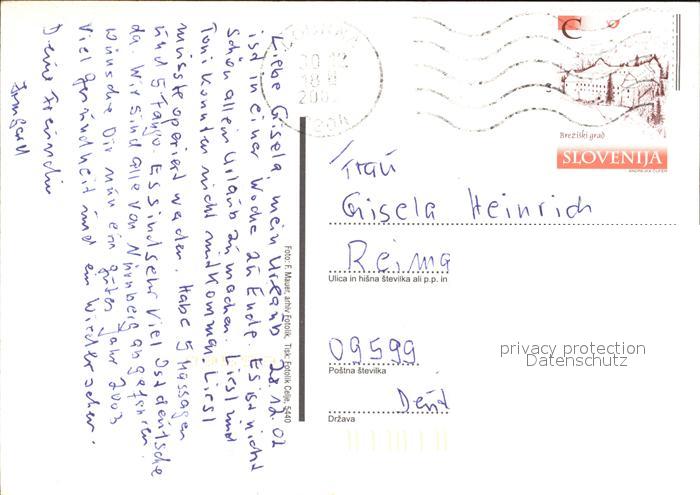 Liebe Gisela, mein Urlaub 28.12.02
ist in einer Woche zu Ende. Es ist nicht
schön allein Urlaub zu machen. Liesl und
Toni konnten nicht mitkommen. Liesl
musste operiert werden. Habe 5 Massagen
und 5 Fango. Es sind sehr viel Ostdeutsche
da. Wir sind alle von Nürnberg angefahren.
wünsche Dir nun ein gutes Jahr 2003
viel Gesundheit und ein Wiedersehen.
Deine Freundin
Irmgard
Foto: F. Mauer, arhiv Fotolik, Tisk: Fotolik Celje, 5440
C
Brežiški grad
SLOVENIJA
Frau
Gisela Heinrich
Reima
Ulica in hišna številka ali p.p. in
09599
Poštna številka
Deut
Država
privacy protection
Datenschutz